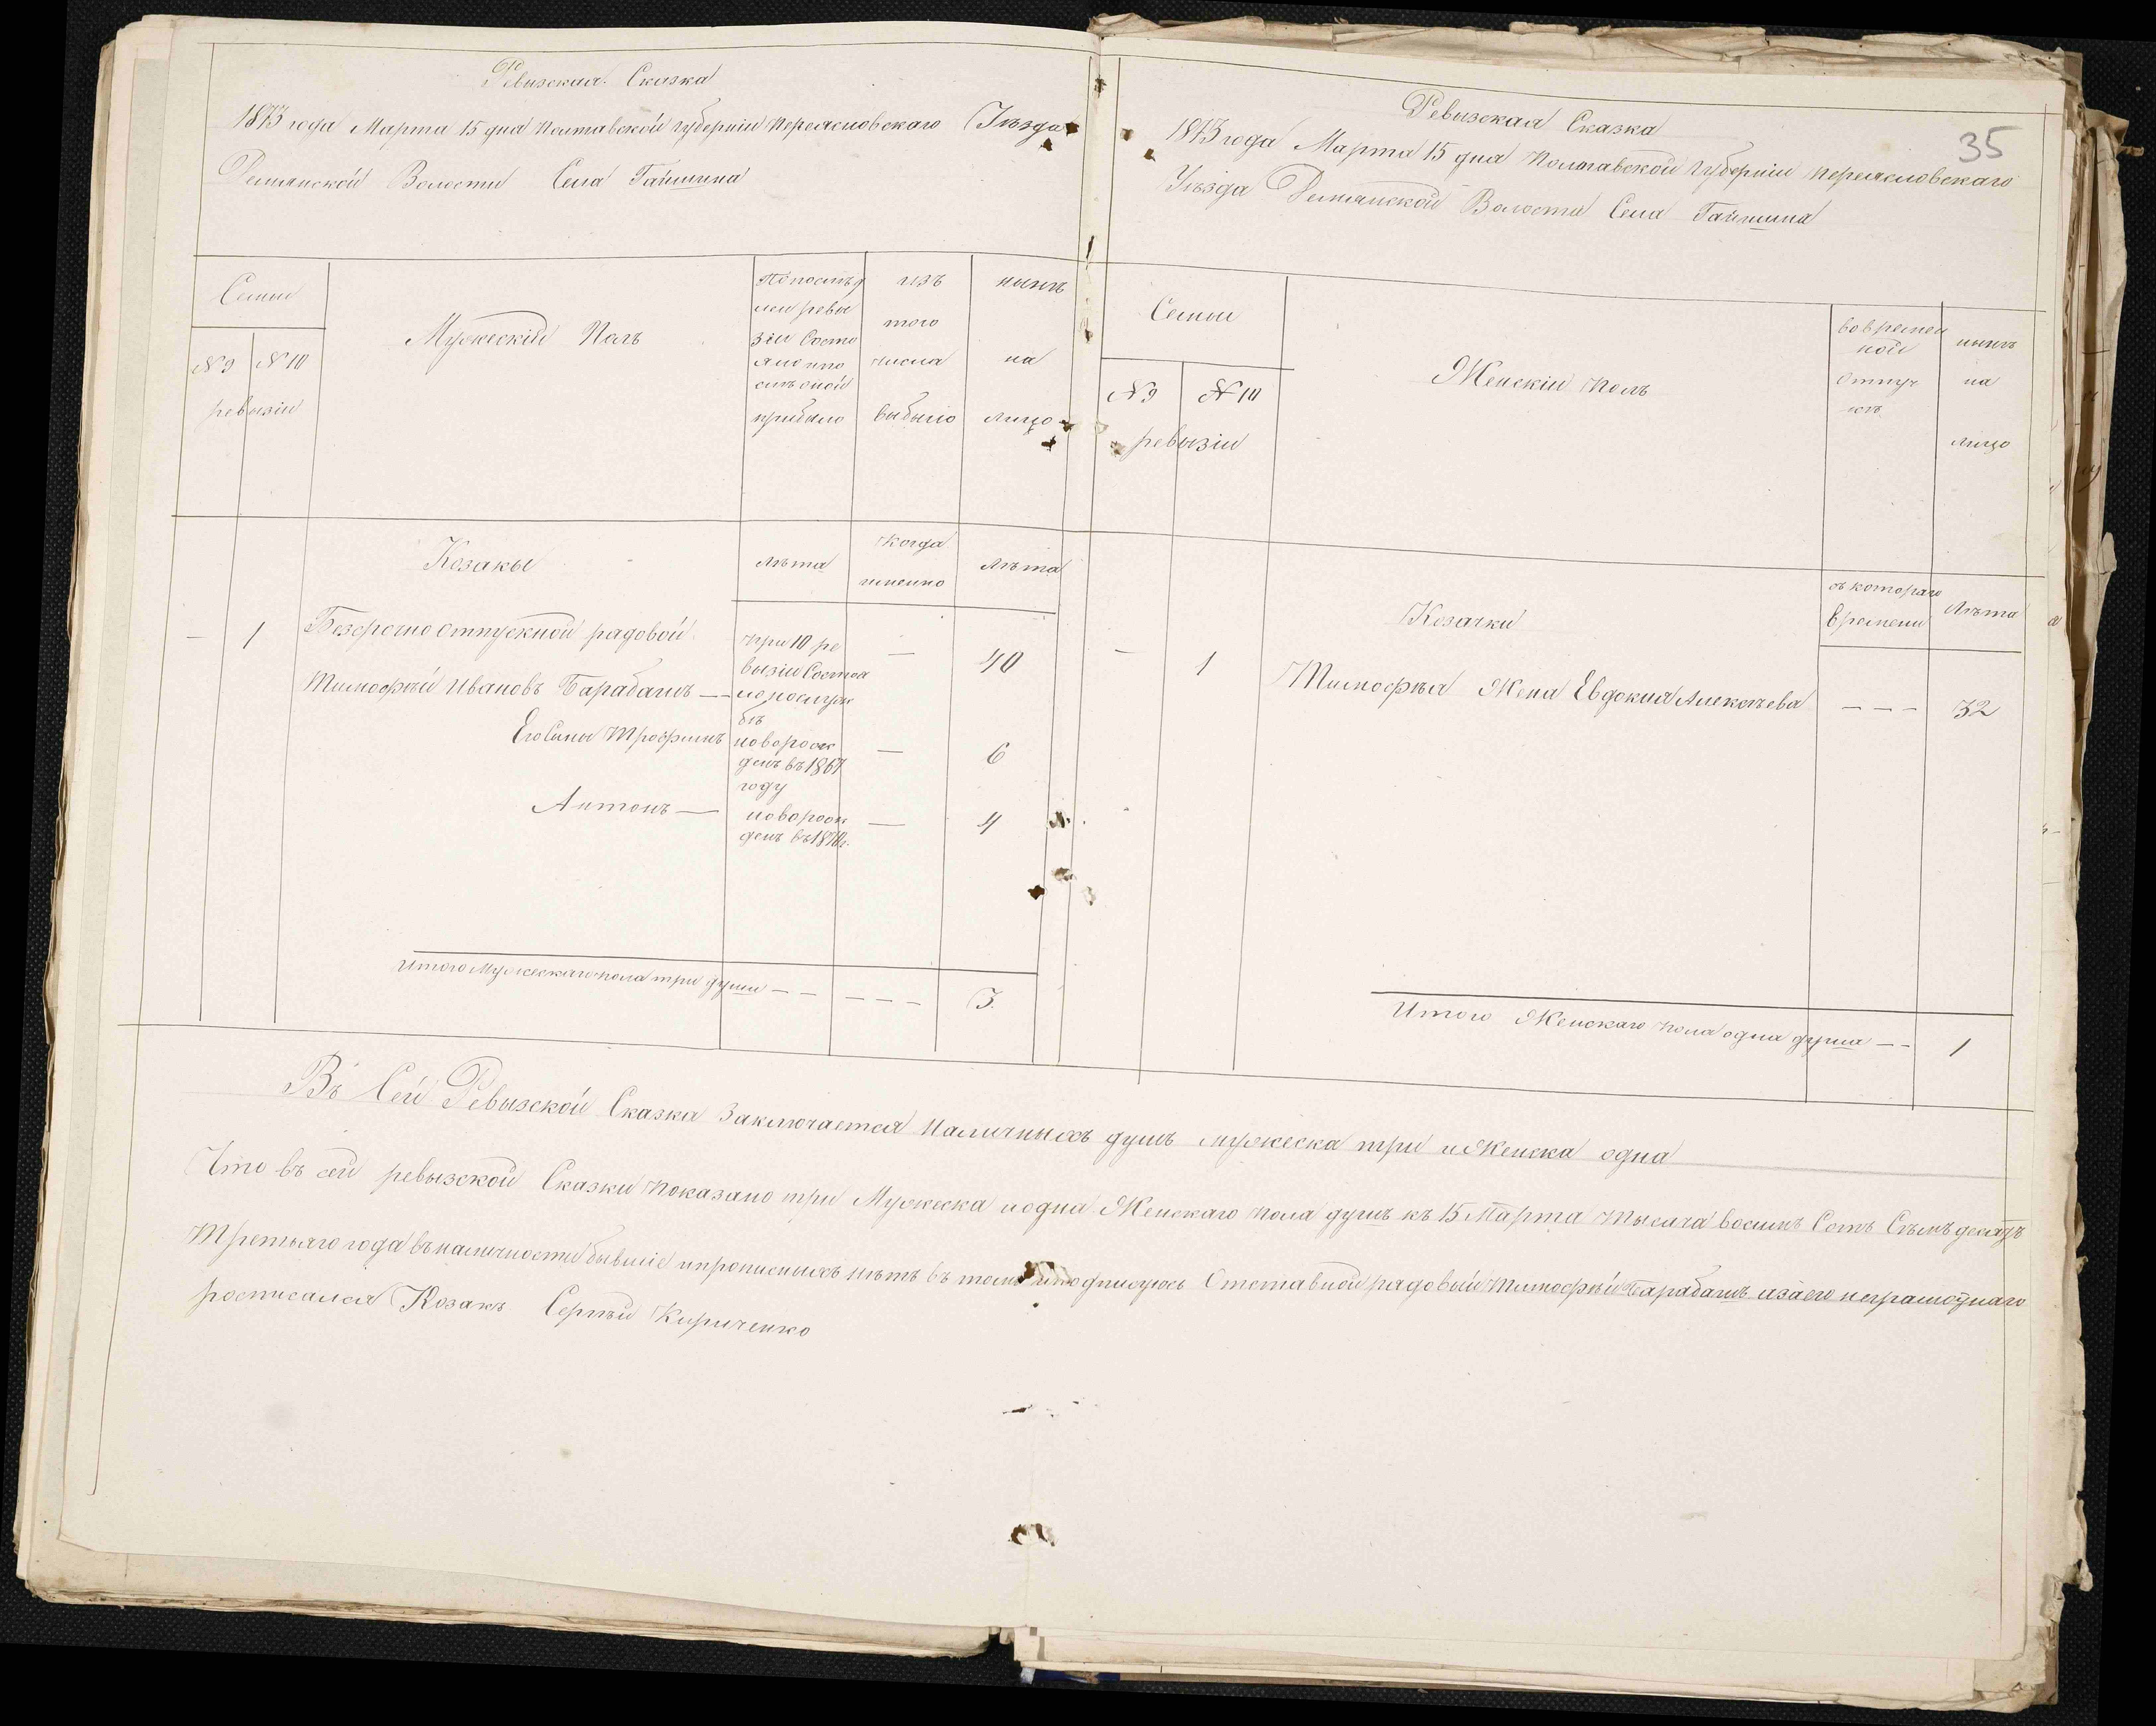 Ревизская Сказка
1873 года Марта 15 дня Полтавской губерніи Переясловскаго Уѣзда
Демянской Волости Села Гайшина
Семьи
№ 9 № 10
ревызіи
Мужескій Полъ
По послѣд
ней ревы
зіи Состо
яло и по
слѣ оной
прибыло
изъ
того
числа
выбыло
нынѣ
на
лицо
Козакы
лѣта
когда
именно
лѣта
— 1 Безсрочно отпускной радовой
Тимофѣй Ивановъ Барабашъ —
при 10 ре
вызіи Состоя
—
40
Его Сины Трофимъ
новорож
денъ въ 1867
году
—
6
Антонъ —
новорож
денъ въ 1870 г.
—
4
Итого Мужескаго пола три души — — — — — 3.
35
Ревизская Сказка
1873 года Марта 15 дна Полтавской Губерніи Переясловскаго
Уѣзда Демянской Волости Села Гайшина
Семьи
№ 9 № 10
ревызіи
Женскій полъ
во времен
ной
отлуч
кѣ
нынѣ
на
лицо
Козачки
съ котораго
времени
лѣта
— 1 Тимофѣя Жена Евдокия Алексѣева — — — 32
Итого Женскаго пола одна душа — — 1
Въ Сей Ревызской Сказка Заключается наличныхъ душъ мужеска три и Женска одна
Что въ сей ревызской Сказки показано три Мужеска и одна Женскаго пола душъ къ 15 Марта тысяча восимъ Сотъ Сѣмъдесятъ
Третьяго года въ наличности бывшіе и прописныхъ нѣтъ въ томъ и подписуюсь Отставной радовый Тимофѣй Барабашъ а за его неграмотнаго
росписался Козакъ Сергѣй Кириченко